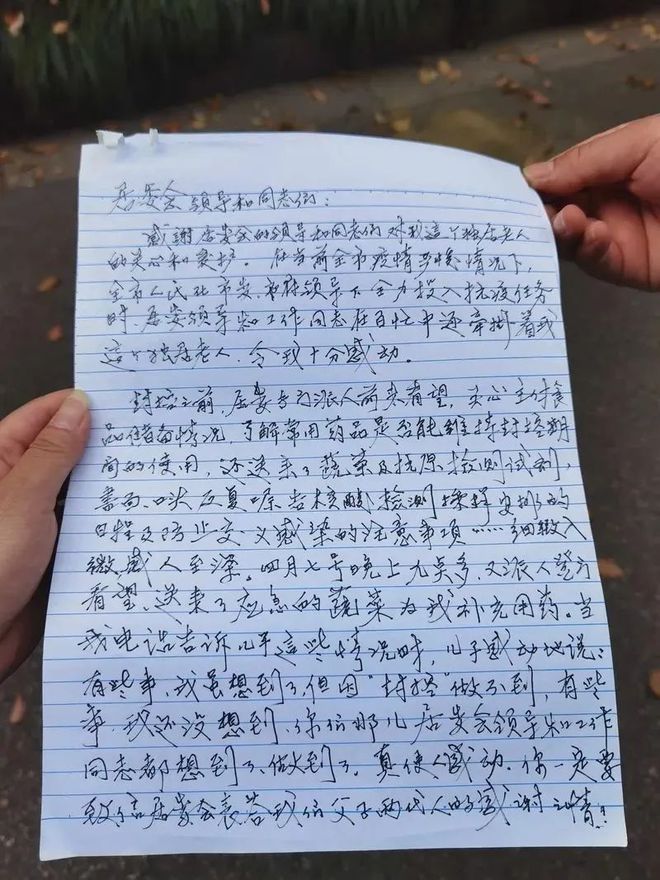 居委会领导和同志们：
感谢居委会的领导和同志们对我这个独居老人
的关心和爱护。在当前全市疫情严峻情况下，
全市人民在市委、市府领导下全力投入抗疫任务
时，居委领导和工作同志在百忙中还牵挂着我
这个独居老人，令我十分感动。
封控之前，居委专门派人前来看望，关心主付食
品储备情况，了解常用药品是否能维持封控期
间的使用，还送来了蔬菜及抗原检测试剂，
书面、口头反复嘱告核酸检测采样安排的
日程及防止交义感染的注意事项……细致入
微，感人至深。四月七号晚上九点多，又派人登门
看望、送来了应急的蔬菜为我补充用药。当
我电话告诉儿子这些情况时，儿子感动地说：
有些事，我虽想到了，但因“封控”做不到，有些
事，我还没想到，你们那儿居委会领导和工作
同志都想到了、做到了。真使人感动。你一定要
致信居委会表答我们父子两代人的感谢之情！